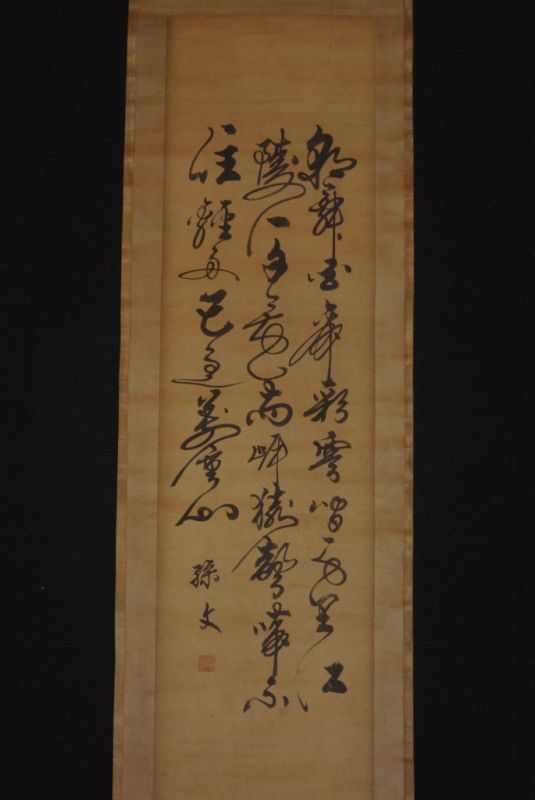 朝辭白帝彩雲間千里江
陵一日還兩岸猿聲啼不
住輕舟已過萬重山
孫文